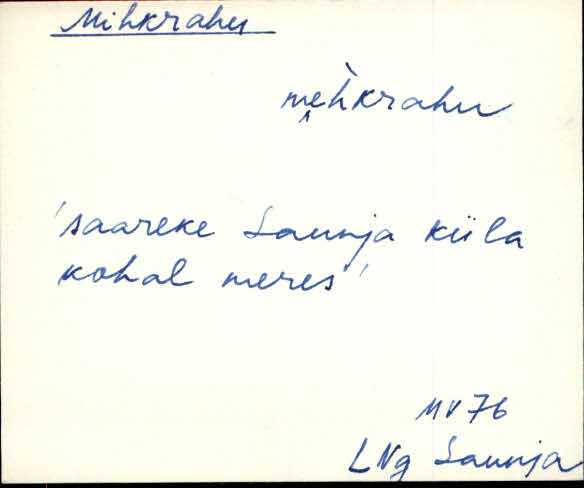 Mihkrahu
me̬h̀krahu
'saareke Saunja küla
kohal meres'
MV 76
LNg Saunja